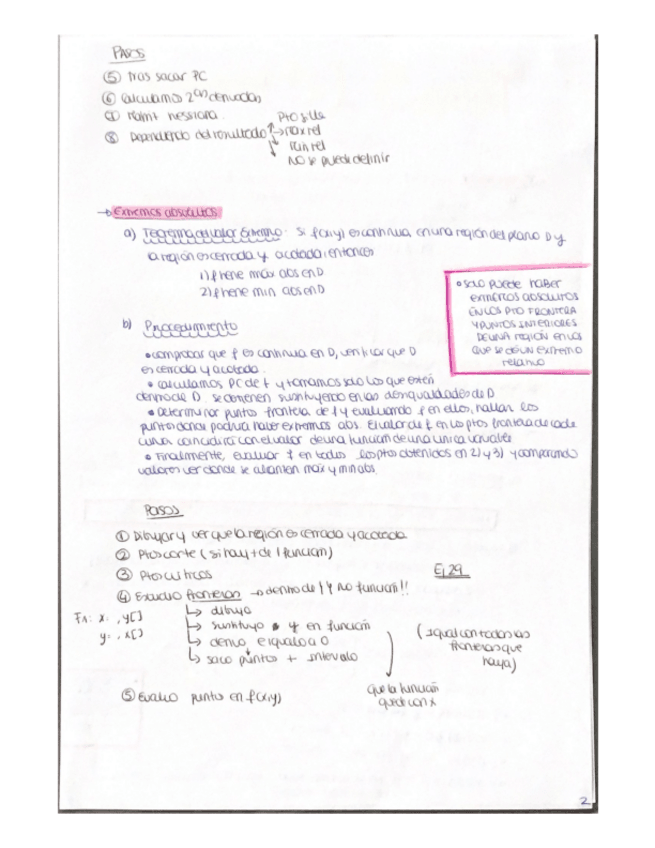 PASOS
⑤ tras sacar PC
⑥ calculamos 2ᵃˢ derivadas
⑦ Matriz hessiana.
⑧ Dependiendo del resultado → Pto silla
→ max rel
min rel
NO se puede definir
→ Extremos absolutos
a) Teorema del valor Extremo: Si f(x,y) es continua en una región del plano D y
la región es cerrada y acotada, entonces
1) f tiene máx abs en D
2) f tiene min abs en D
• SOLO PUEDE HABER
EXTREMOS ABSOLUTOS
EN LOS PTO FRONTERA
Y PUNTOS INTERIORES
DE UNA REGIÓN EN LOS
QUE SE DÉ UN EXTREMO
relativo
b) Procedimiento
• comprobar que f es continua en D, verificar que D
es cerrada y acotada.
• calculamos PC de f y tomamos solo los que estén
dentro de D. se obtienen sustituyendo en las desigualdades de D
• Determinar puntos frontera de f y evaluando f en ellos, hallar los
puntos donde podría haber extremos abs. El valor de f en los ptos frontera de cada
curva coincidirá con el valor de una función de una única variable
• Finalmente, evaluar f en todos los ptos obtenidos en 2) y 3) y comparando
valores ver donde se alcanzan máx y min abs.
PASOS
① Dibujar y ver que la región es cerrada y acotada
② Ptos corte (si hay + de 1 función)
③ Ptos críticos
Ej 29
④ Estudio fronteras → dentro de 1 y no función!!
F1: x= , y[]
y= , x[]
↳ dibujo
↳ sustituyo y en función
↳ derivo e igualo a 0
↳ saco puntos + intervalo
(igual con todas las
fronteras que
haya)
que la función
quede con x
⑤ Evalúo punto en f(x,y)
2